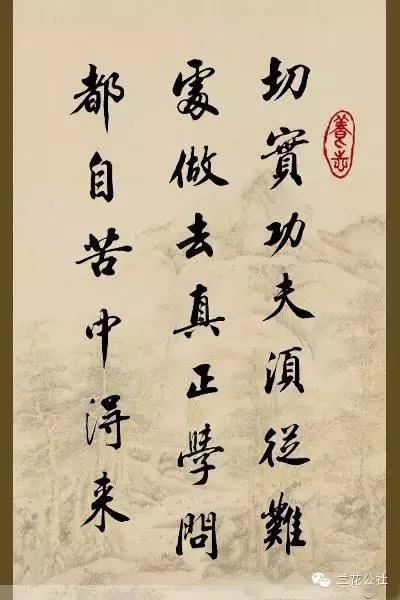 切實功夫須從難
處做去真正學問
都自苦中得来
養志
兰花公社